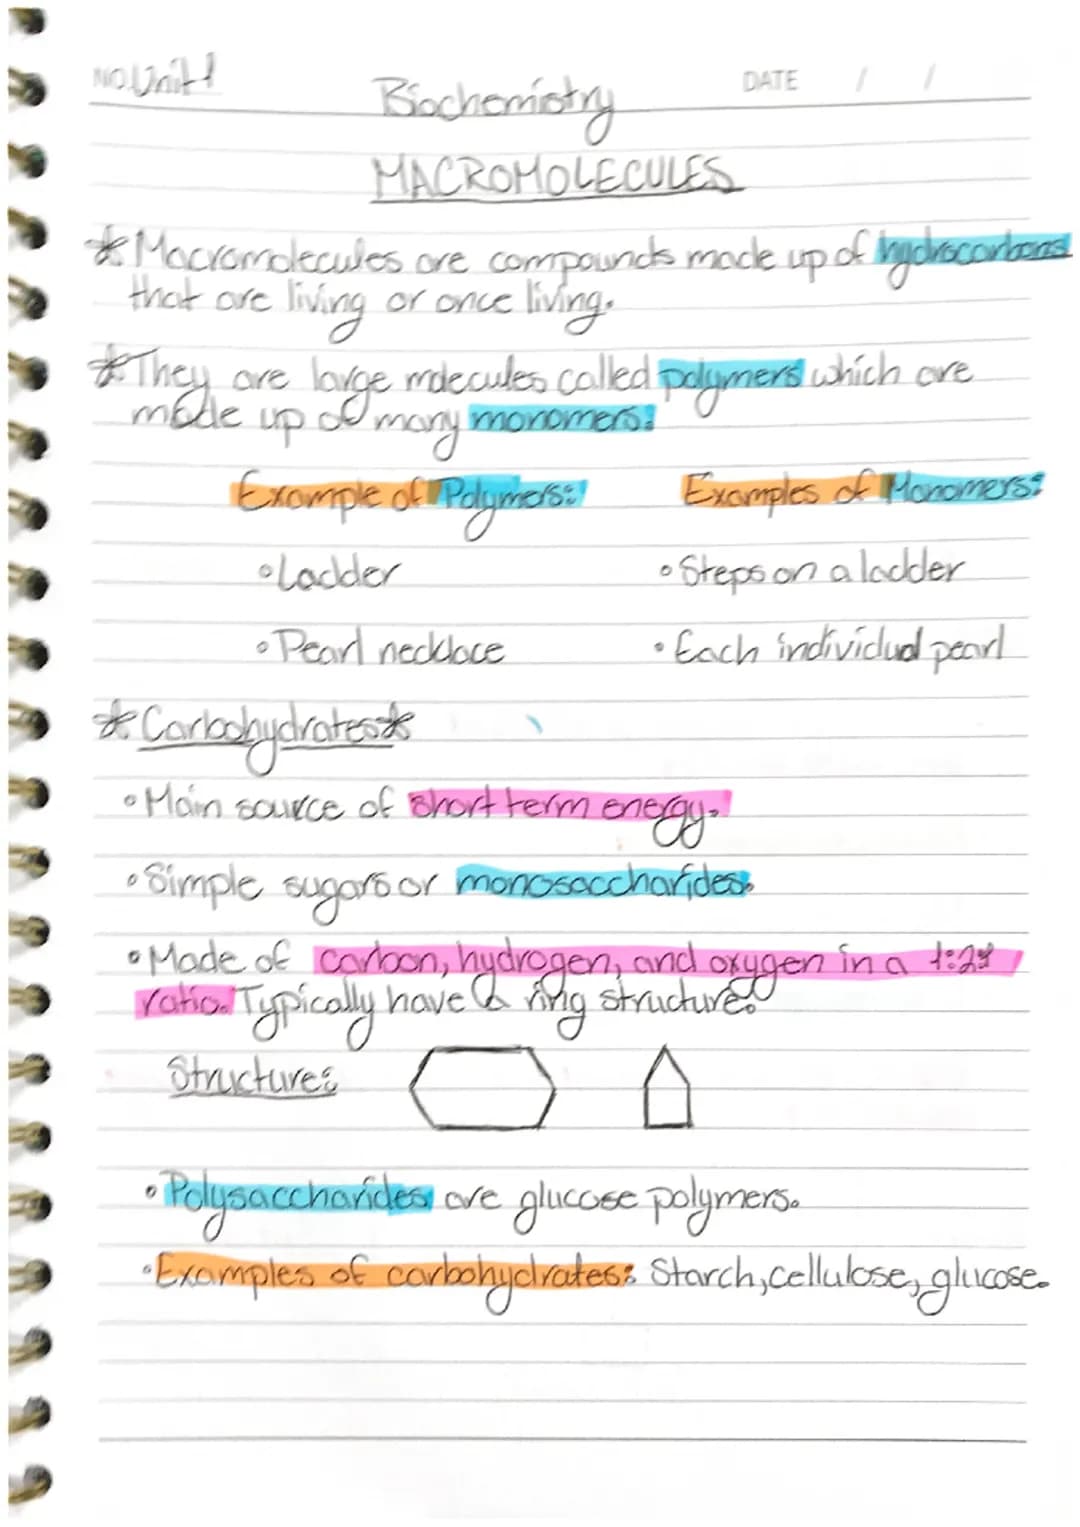 NO. Unit 1
DATE / /
Biochemistry
MACROMOLECULES
* Macromolecules are compounds made up of hydrocarbons
that are living or once living.
* They are large molecules called polymers which are
made up of many monomers.
Example of Polymers: Examples of Monomers:
• Ladder • Steps on a ladder
• Pearl necklace • Each individual pearl
* Carbohydrates *
• Main source of short term energy.
• Simple sugars or monosaccharides.
• Made of carbon, hydrogen, and oxygen in a 1:2:1
ratio. Typically have a ring structure.
Structure:
• Polysaccharides are glucose polymers.
• Examples of carbohydrates: Starch, cellulose, glucose.